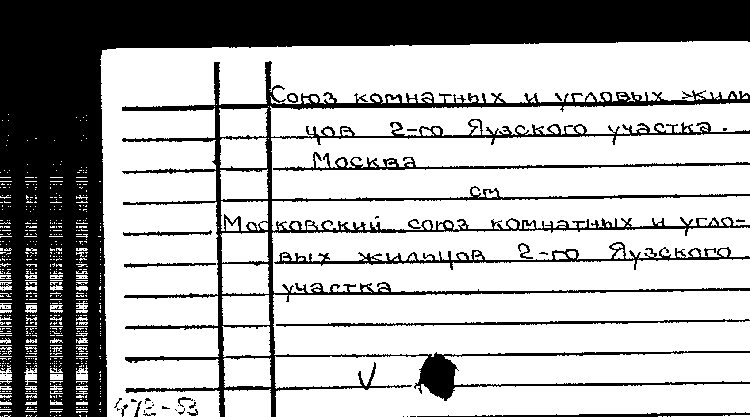 Союз комнатных и угловых жиль
цов 2-го Яузского участка.
Москва
см
Московский союз комнатных и угло-
вых жильцов 2-го Яузского
участка
V
472-53